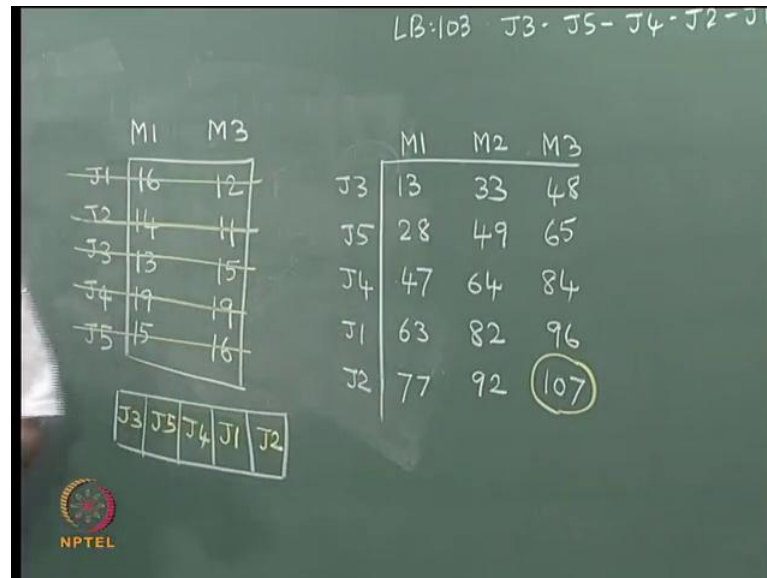 LB:103 J3 - J5 - J4 - J2 - J1
M1 M3
J1 16 12
J2 14 11
J3 13 15
J4 19 19
J5 15 16
J3 J5 J4 J1 J2
M1 M2 M3
J3 13 33 48
J5 28 49 65
J4 47 64 84
J1 63 82 96
J2 77 92 107
NPTEL